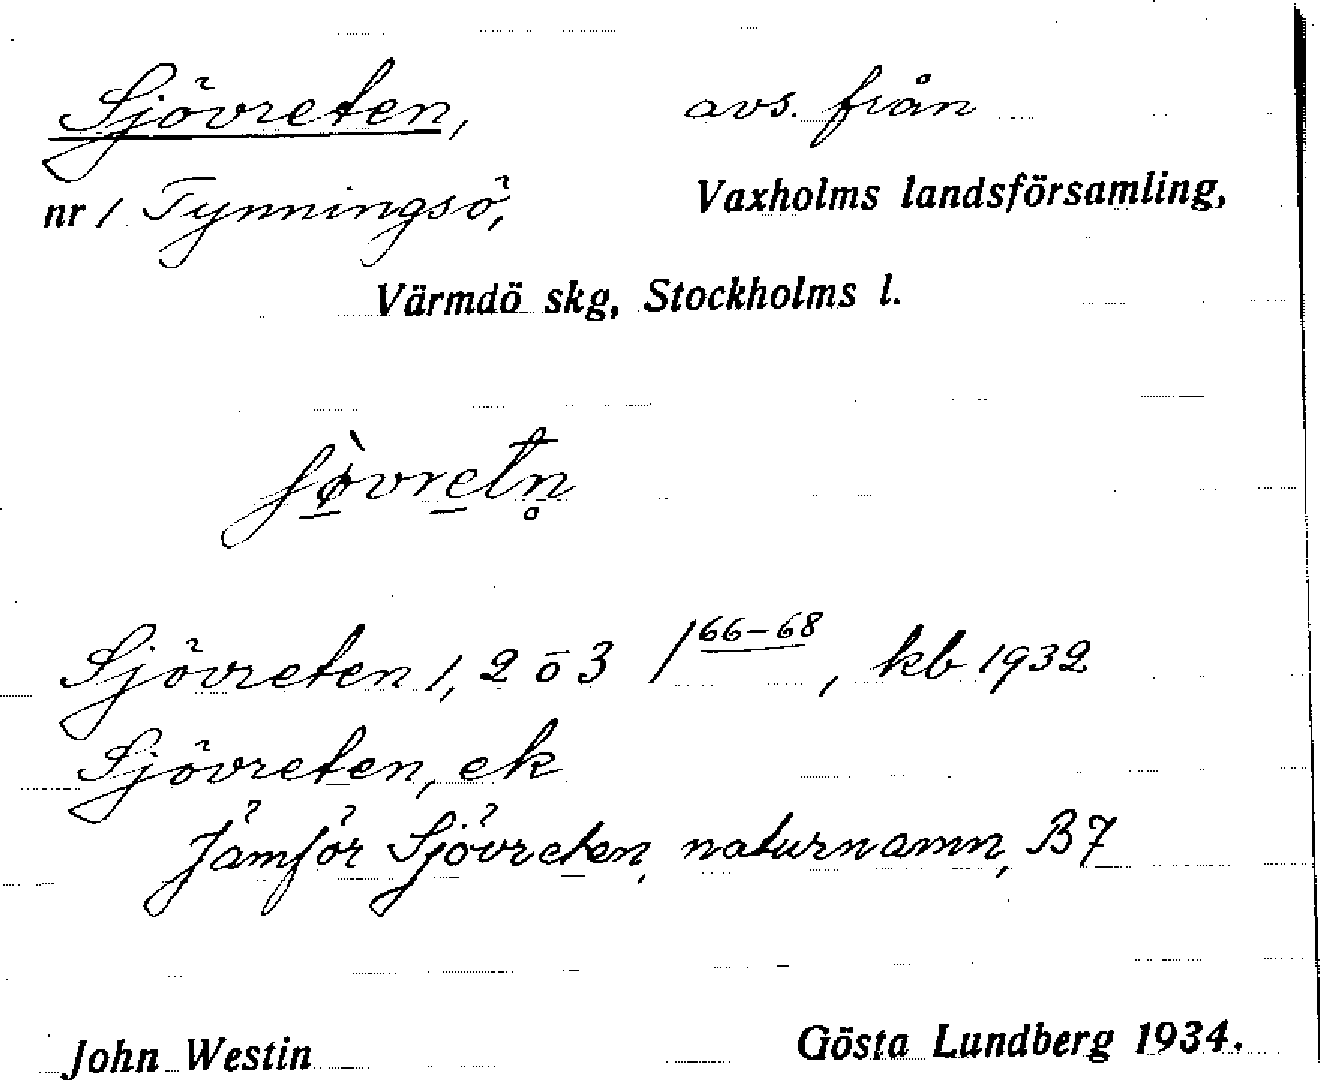 Sjövreten, avs. från
nr 1 Tynningsö, Vaxholms landsförsamling,
Värmdö skg, Stockholms l.
Sjövreten 1, 2 o 3 1 66-68, kb 1932
Sjövreten, ek
Jämför Sjövreten, naturnamn, B7
John Westin Gösta Lundberg 1934.